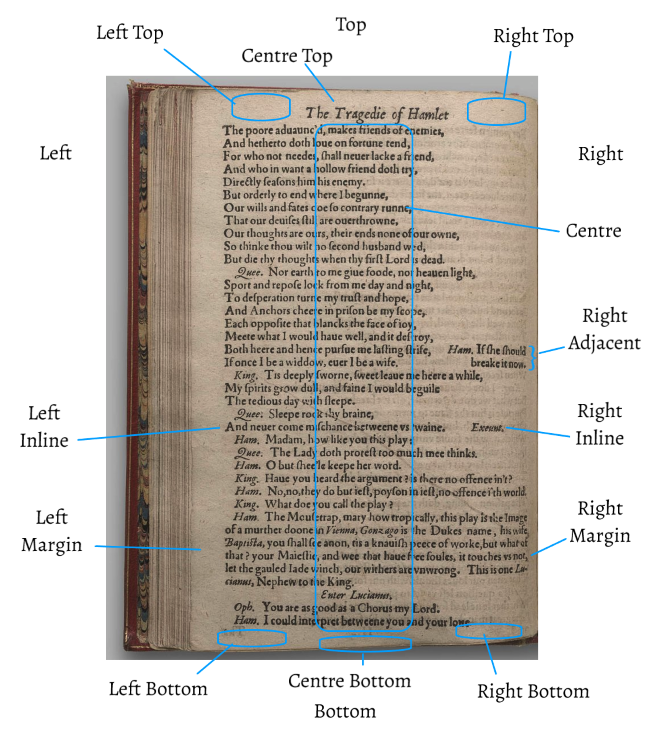 Top
Left Top
Right Top
Centre Top
The Tragedie of Hamlet
The poore aduaunc'd, makes friends of enemies,
And hetherto doth loue on fortune tend,
For who not needes, ſhall neuer lacke a friend,
And who in want a hollow friend doth try,
Directly ſeaſons him his enemy.
But orderly to end where I begunne,
Our wills and fates doe ſo contrary runne,
That our deuiſes ſtill are ouerthrowne,
Our thoughts are ours, their ends none of our owne,
So thinke thou wilt no ſecond husband wed,
But die thy thoughts when thy firſt Lord is dead.
Quee. Nor earth to me giue foode, nor heauen light,
Sport and repoſe lock from me day and night,
To deſperation turne my truſt and hope,
And Anchors cheere in priſon be my ſcope,
Each oppoſite that blancks the face of ioy,
Meete what I would haue well, and it deſtroy,
Both heere and hence purſue me laſting ſtrife, Ham. If ſhe ſhould
If once I be a widdow, euer I be a wife. breake it now.
King. Tis deeply ſworne, ſweet leaue me heere a while,
My ſpirits grow dull, and faine I would beguile
The tedious day with ſleepe.
Quee. Sleepe rock thy braine,
And neuer come miſchance betweene vs twaine. Exeunt.
Ham. Madam, how like you this play?
Quee. The Lady doth proteſt too much mee thinks.
Ham. O but ſhee'le keepe her word.
King. Haue you heard the argument? is there no offence in't?
Ham. No, no, they do but ieſt, poyſon in ieſt, no offence i'th world.
King. What doe you call the play?
Ham. The Mouſetrap, mary how tropically, this play is the Image
of a murther doone in Vienna, Gonzago is the Dukes name, his wife
Baptiſta, you ſhall ſee anon, tis a knauiſh peece of worke, but what of
that? your Maieſtie, and wee that haue free ſoules, it touches vs not,
let the gauled Iade winch, our withers are vnwrong. This is one Lu-
cianus, Nephew to the King.
Enter Lucianus.
Oph. You are as good as a Chorus my Lord.
Ham. I could interpret betweene you and your loue
Left
Right
Centre
Right
Adjacent
Left
Inline
Right
Inline
Left
Margin
Right
Margin
Left Bottom
Centre Bottom
Right Bottom
Bottom